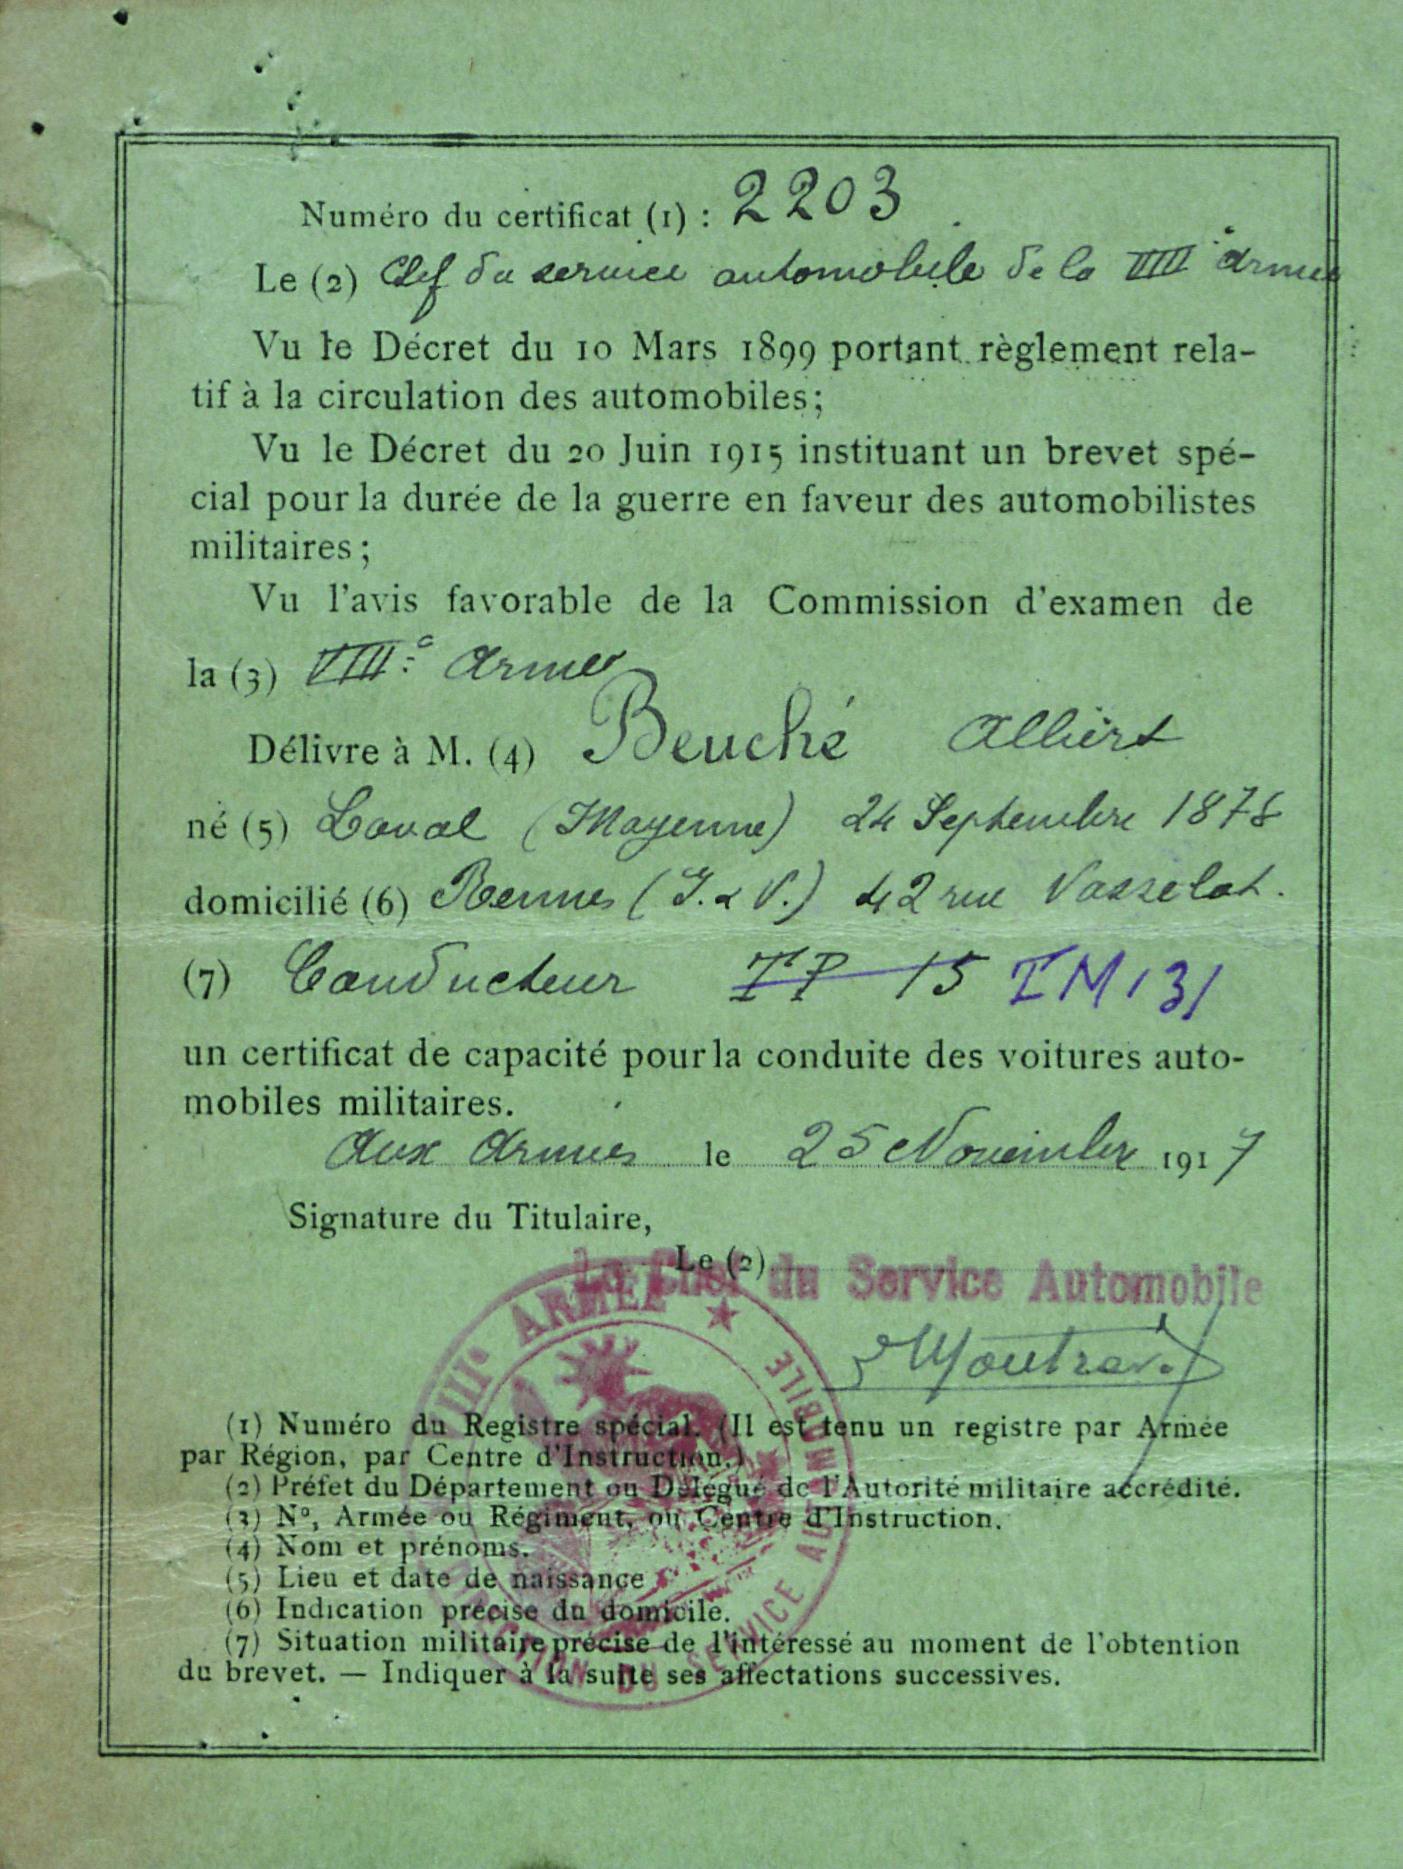 Numéro du certificat (1) : 2203
Le (2) Chef du service automobile de la VIIIe Armée
Vu le Décret du 10 Mars 1899 portant règlement rela-
tif à la circulation des automobiles;
Vu le Décret du 20 Juin 1915 instituant un brevet spé-
cial pour la durée de la guerre en faveur des automobilistes
militaires;
Vu l'avis favorable de la Commission d'examen de
la (3) VIIIe Armée
Délivre à M. (4) Beuché Albert
né (5) Laval (Mayenne) 24 Septembre 1878
domicilié (6) Rennes (I. & V.) 42 rue Vasselot.
(7) Conducteur TP 15 TM 131
un certificat de capacité pour la conduite des voitures auto-
mobiles militaires.
Aux Armées le 25 Novembre 1917
Signature du Titulaire,
Le (2)
Le Chef du Service Automobile
VIIIe ARMÉE
DU SERVICE AUTOMOBILE
(1) Numéro du Registre spécial. (Il est tenu un registre par Armée
par Région, par Centre d'Instruction.)
(2) Préfet du Département ou Délégué de l'Autorité militaire accrédité.
(3) N°, Armée ou Régiment, ou Centre d'Instruction.
(4) Nom et prénoms.
(5) Lieu et date de naissance
(6) Indication précise du domicile.
(7) Situation militaire précise de l'intéressé au moment de l'obtention
du brevet. — Indiquer à la suite ses affectations successives.